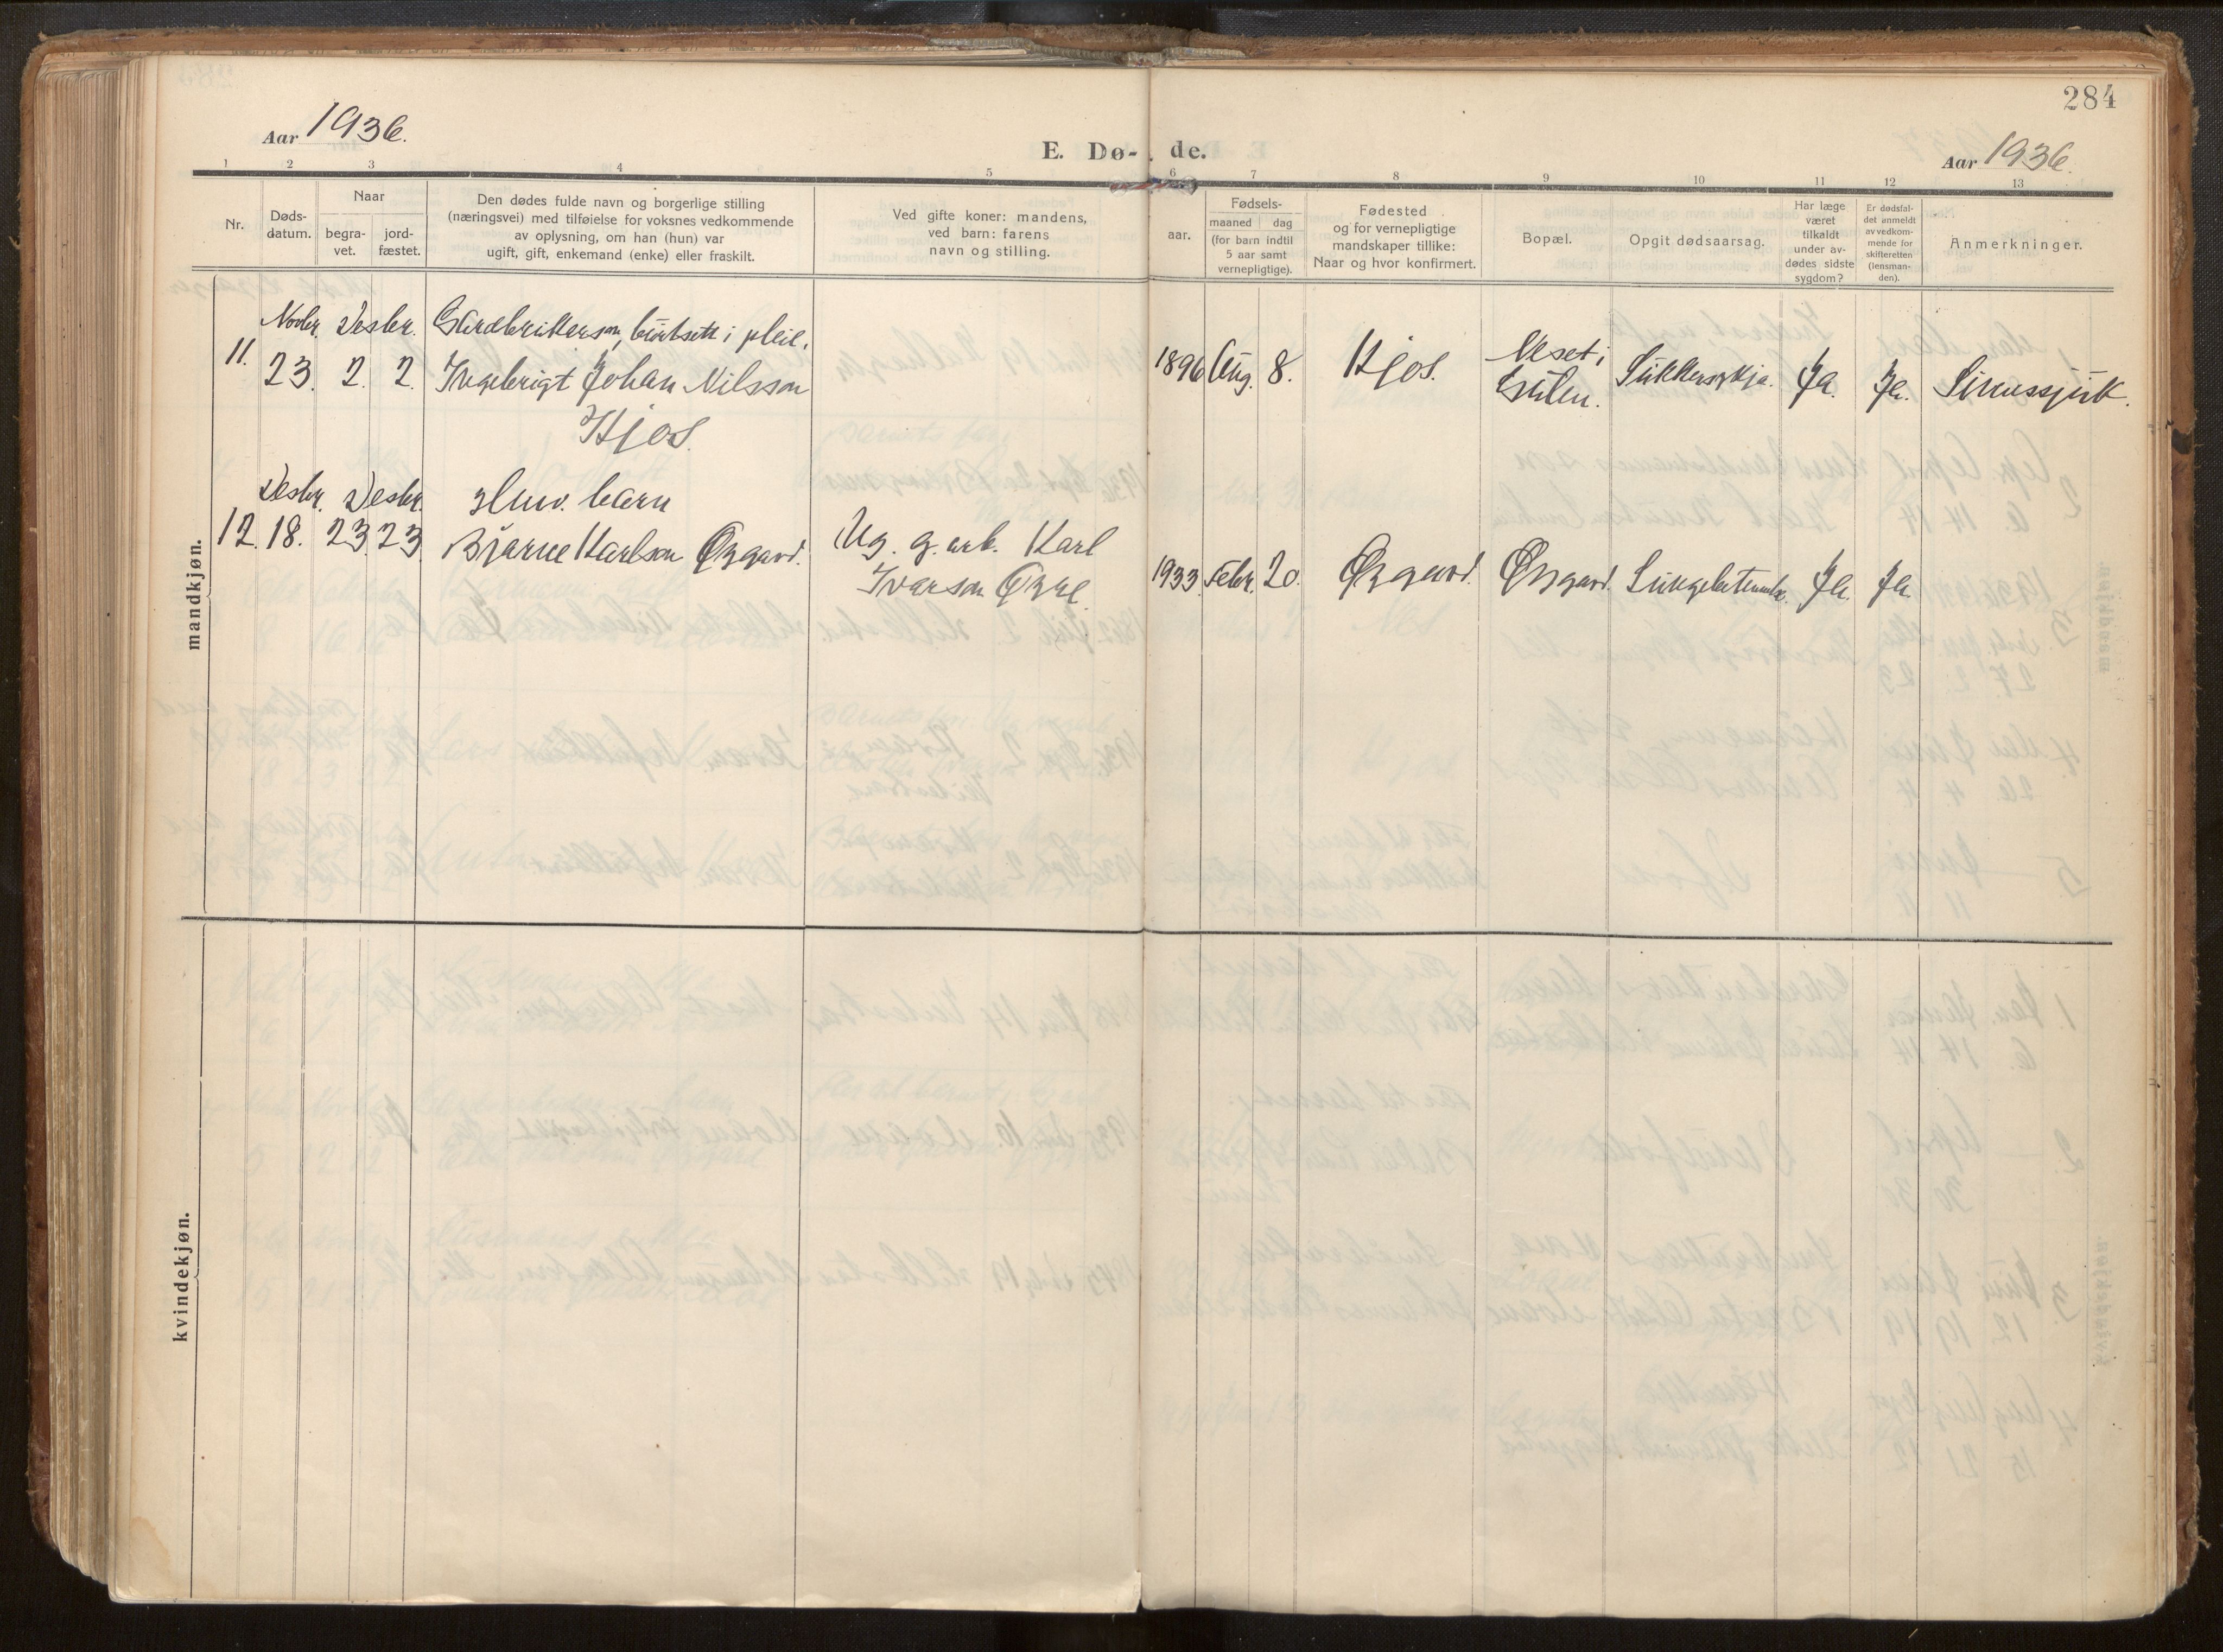 284
Aar 1936.
E. Dø- de.
Aar 1936.
1 2 3 4 5 6 7 8 9 10 11 12 13
Nr.
Døds-
datum.
Naar
begra-
vet.
jord-
fæstet.
Den dødes fulde navn og borgerlige stilling
(næringsvei) med tilføielse for voksnes vedkommende
av oplysning, om han (hun) var
ugift, gift, enkemand (enke) eller fraskilt.
Ved gifte koner: mandens,
ved barn: farens
navn og stilling.
aar.
Fødsels-
maaned dag
(for barn indtil
5 aar samt
vernepligtige).
Fødested
og for vernepligtige
mandskaper tillike:
Naar og hvor konfirmert.
Bopæl.
Opgit dødsaarsag.
Har læge
været
tilkaldt
under av-
dødes sidste
sygdom?
Er dødsfal-
det anmeldt
av vedkom-
mende for
skifteretten
(lensman-
den).
Anmerkninger.
mandkjøn.
Novbr. Desbr. Gardbrukerson, burtsett i pleie.
11. 23. 2. 2. Ingebrigt Johan Nilsson
Kjos.
1896 Aug. 8. Kjos. Neset i
Gulen.
Sukkersykja. Ja. Ja. Sinnssjuk.
Desbr. Desbr. Umv. barn
12. 18. 23. 23. Bjarne Karlson Øygard.
Ug. g.arb. Karl
Ivarson Øyre.
1933. Febr. 20. Øygard. Øygard. Ja. Ja.
kvindekjøn.